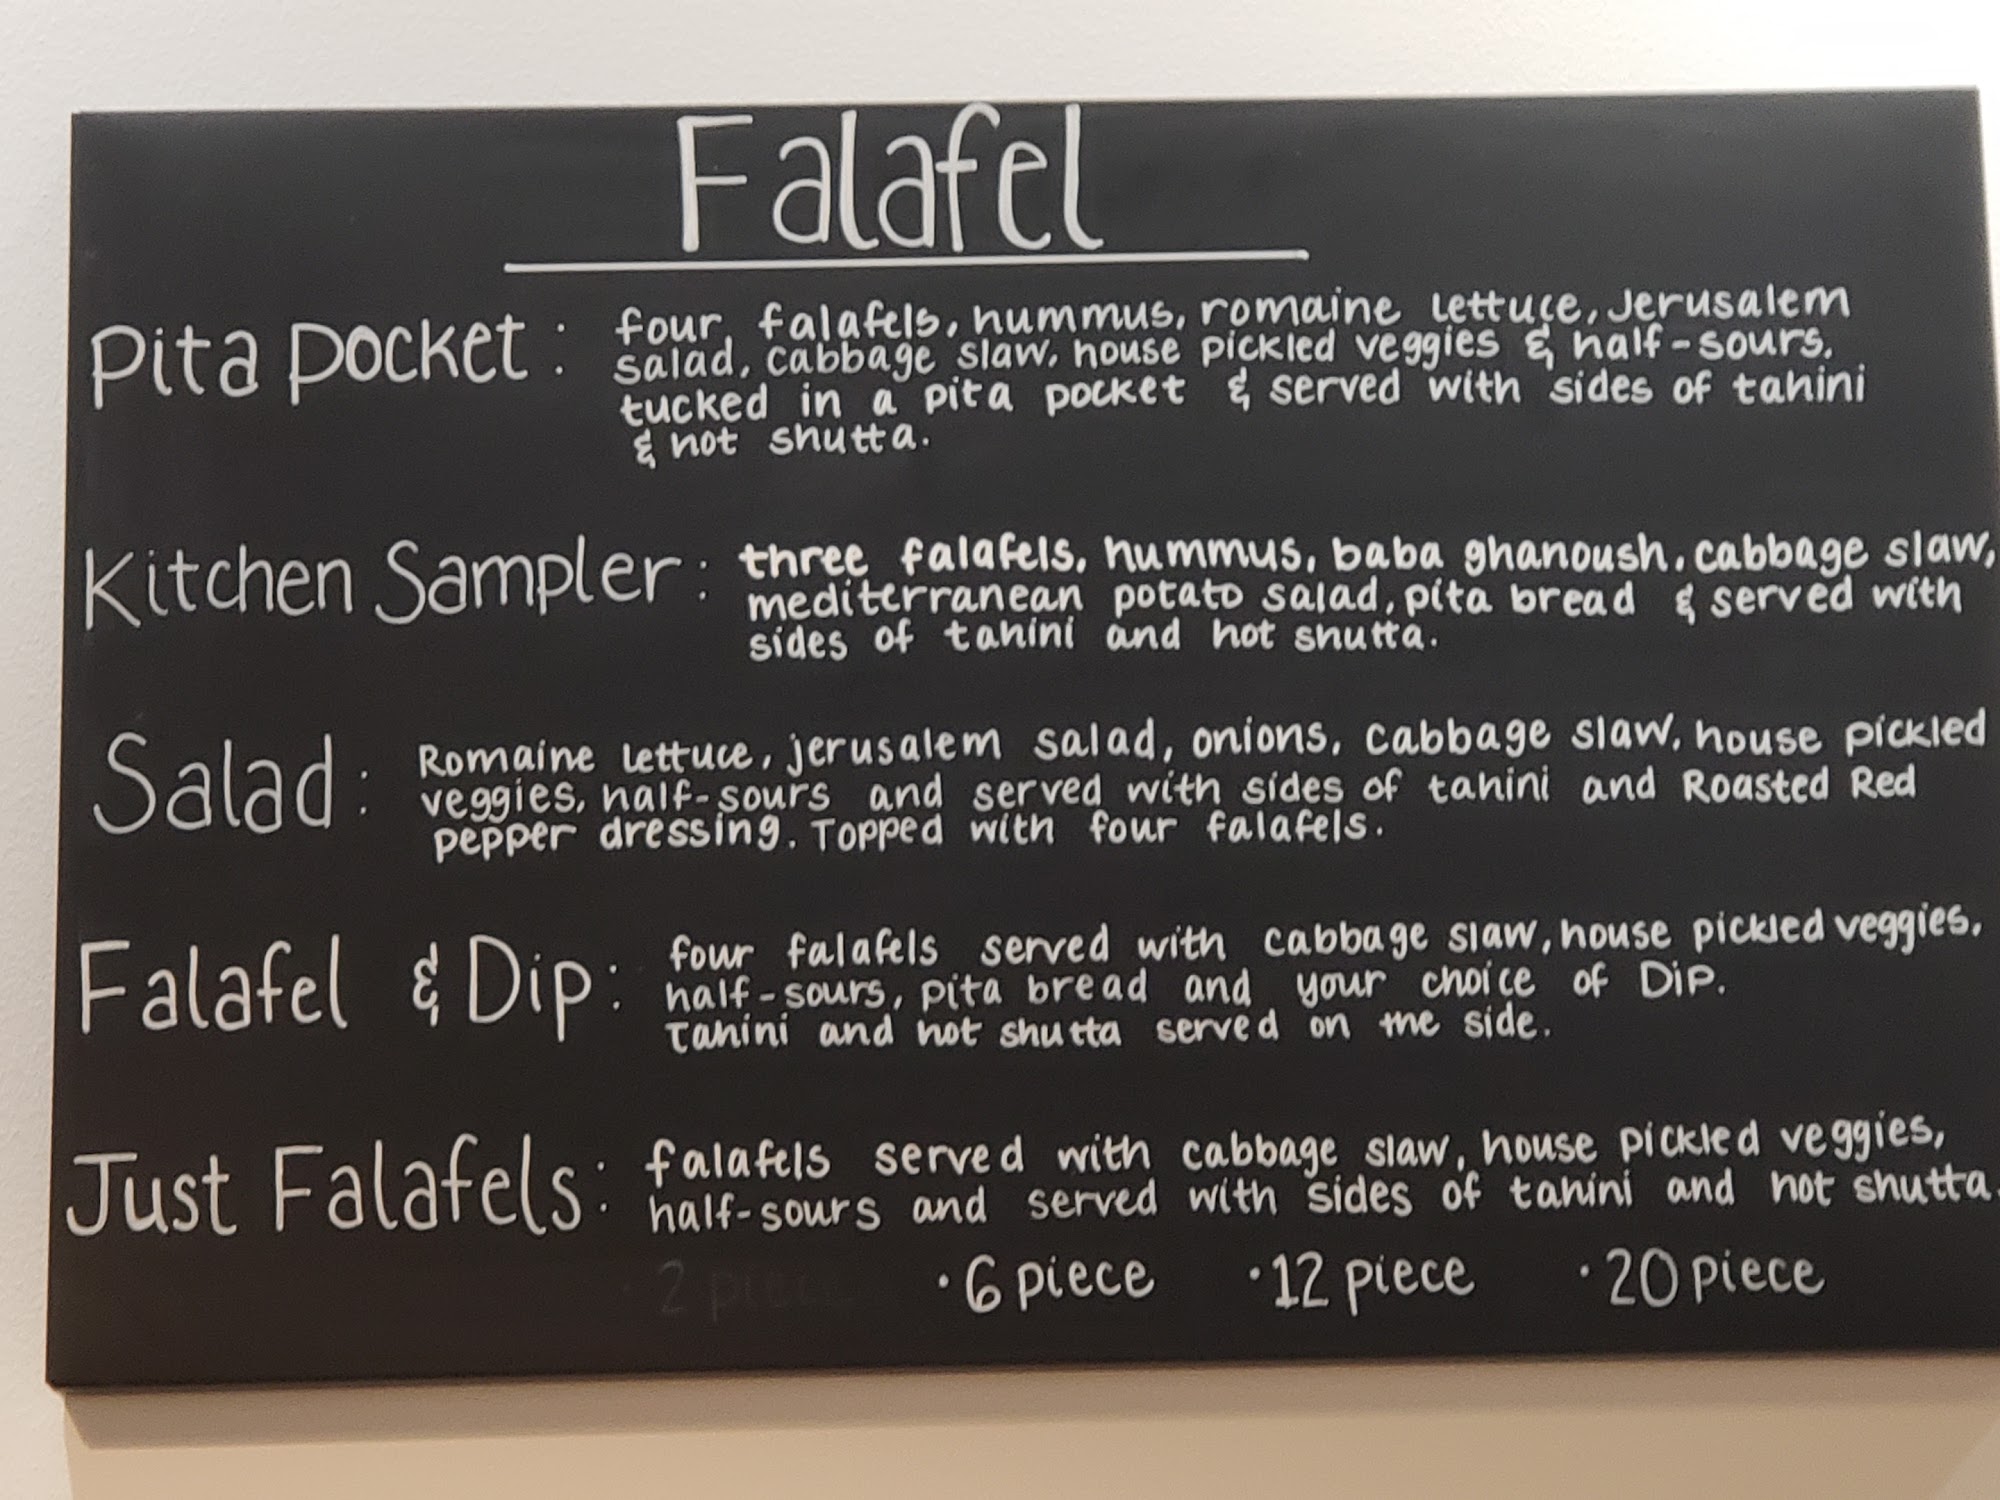 Falafel
Pita Pocket: four falafels, hummus, romaine lettuce, Jerusalem
salad, cabbage slaw, house pickled veggies & half-sours,
tucked in a pita pocket & served with sides of tahini
& hot shutta.
Kitchen Sampler: three falafels, hummus, baba ghanoush, cabbage slaw,
mediterranean potato salad, pita bread & served with
sides of tahini and hot shutta.
Salad: Romaine lettuce, jerusalem salad, onions, cabbage slaw, house pickled
veggies, half-sours and served with sides of tahini and Roasted Red
pepper dressing. Topped with four falafels.
Falafel & Dip: four falafels served with cabbage slaw, house pickled veggies,
half-sours, pita bread and your choice of Dip.
Tahini and hot shutta served on the side.
Just Falafels: falafels served with cabbage slaw, house pickled veggies,
half-sours and served with sides of tahini and hot shutta.
· 2 piece · 6 piece · 12 piece · 20 piece